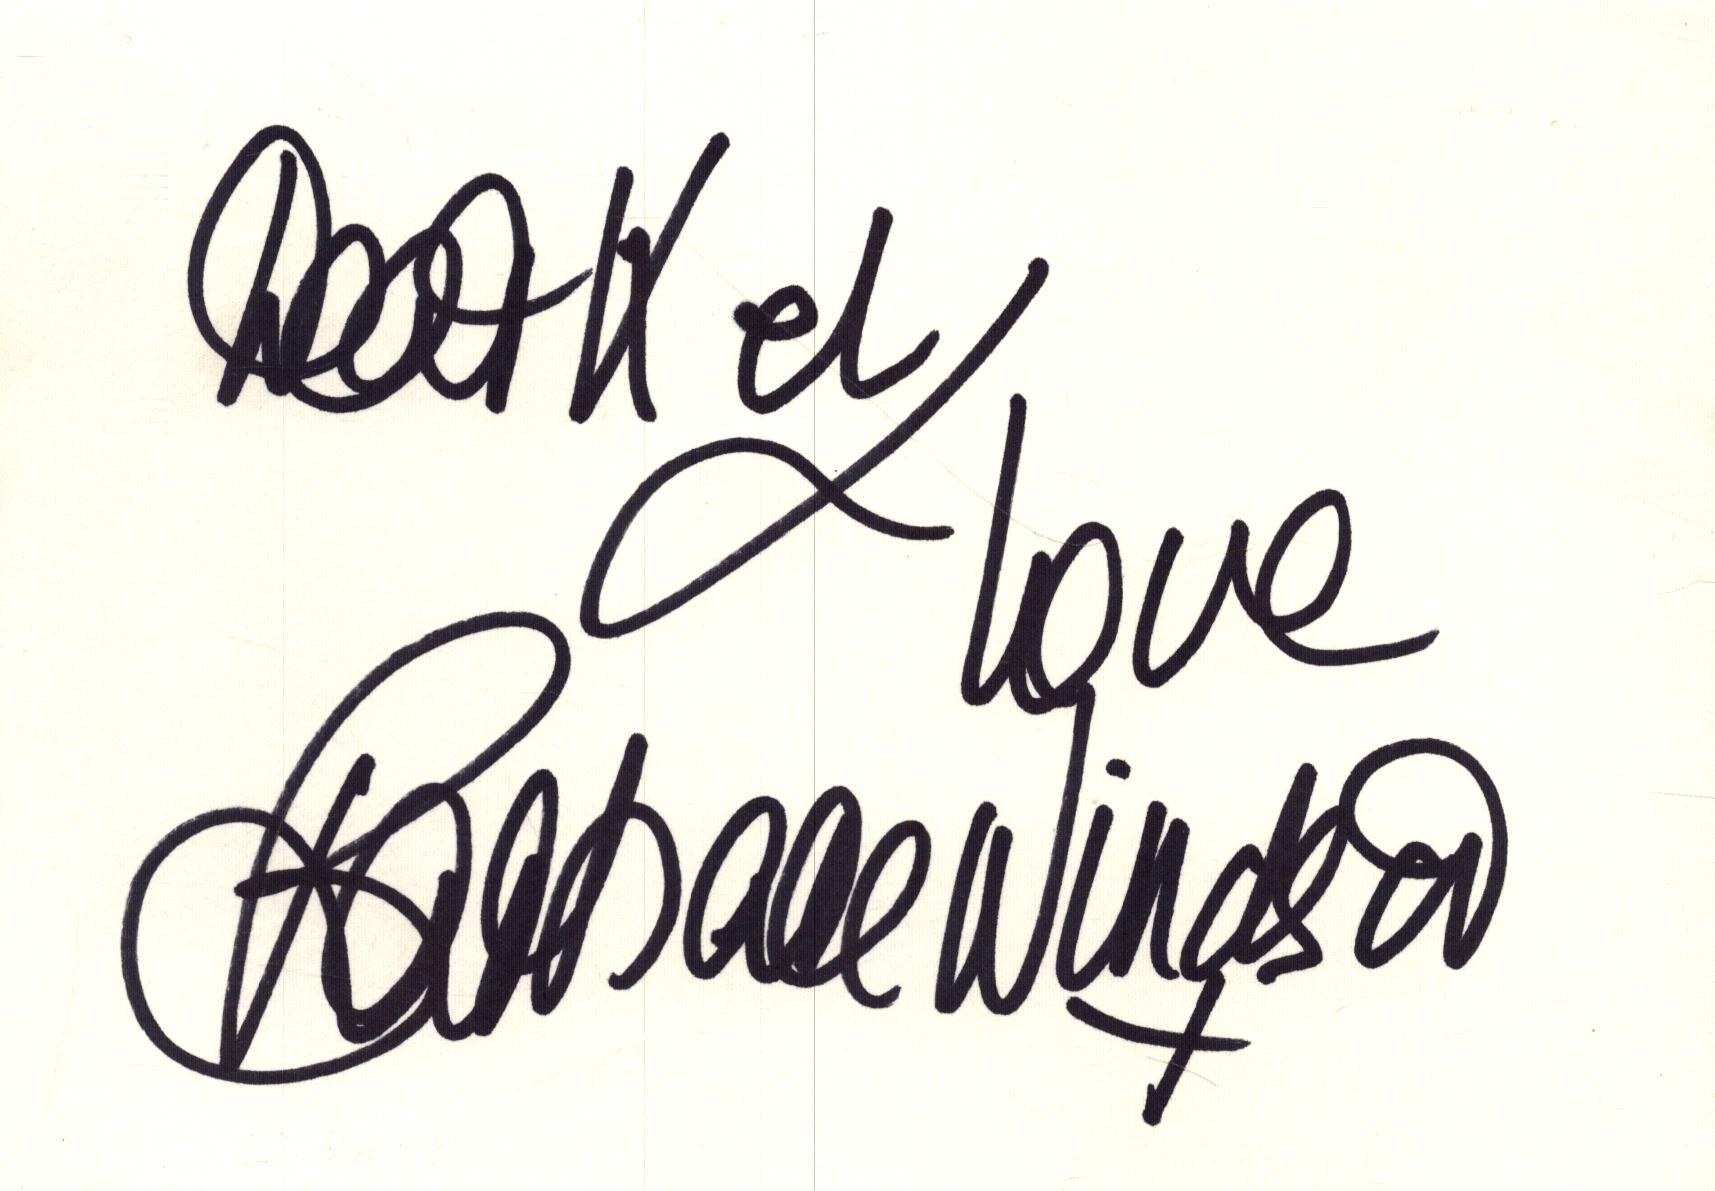 Dear Kel
love
Barbara Windsor
x